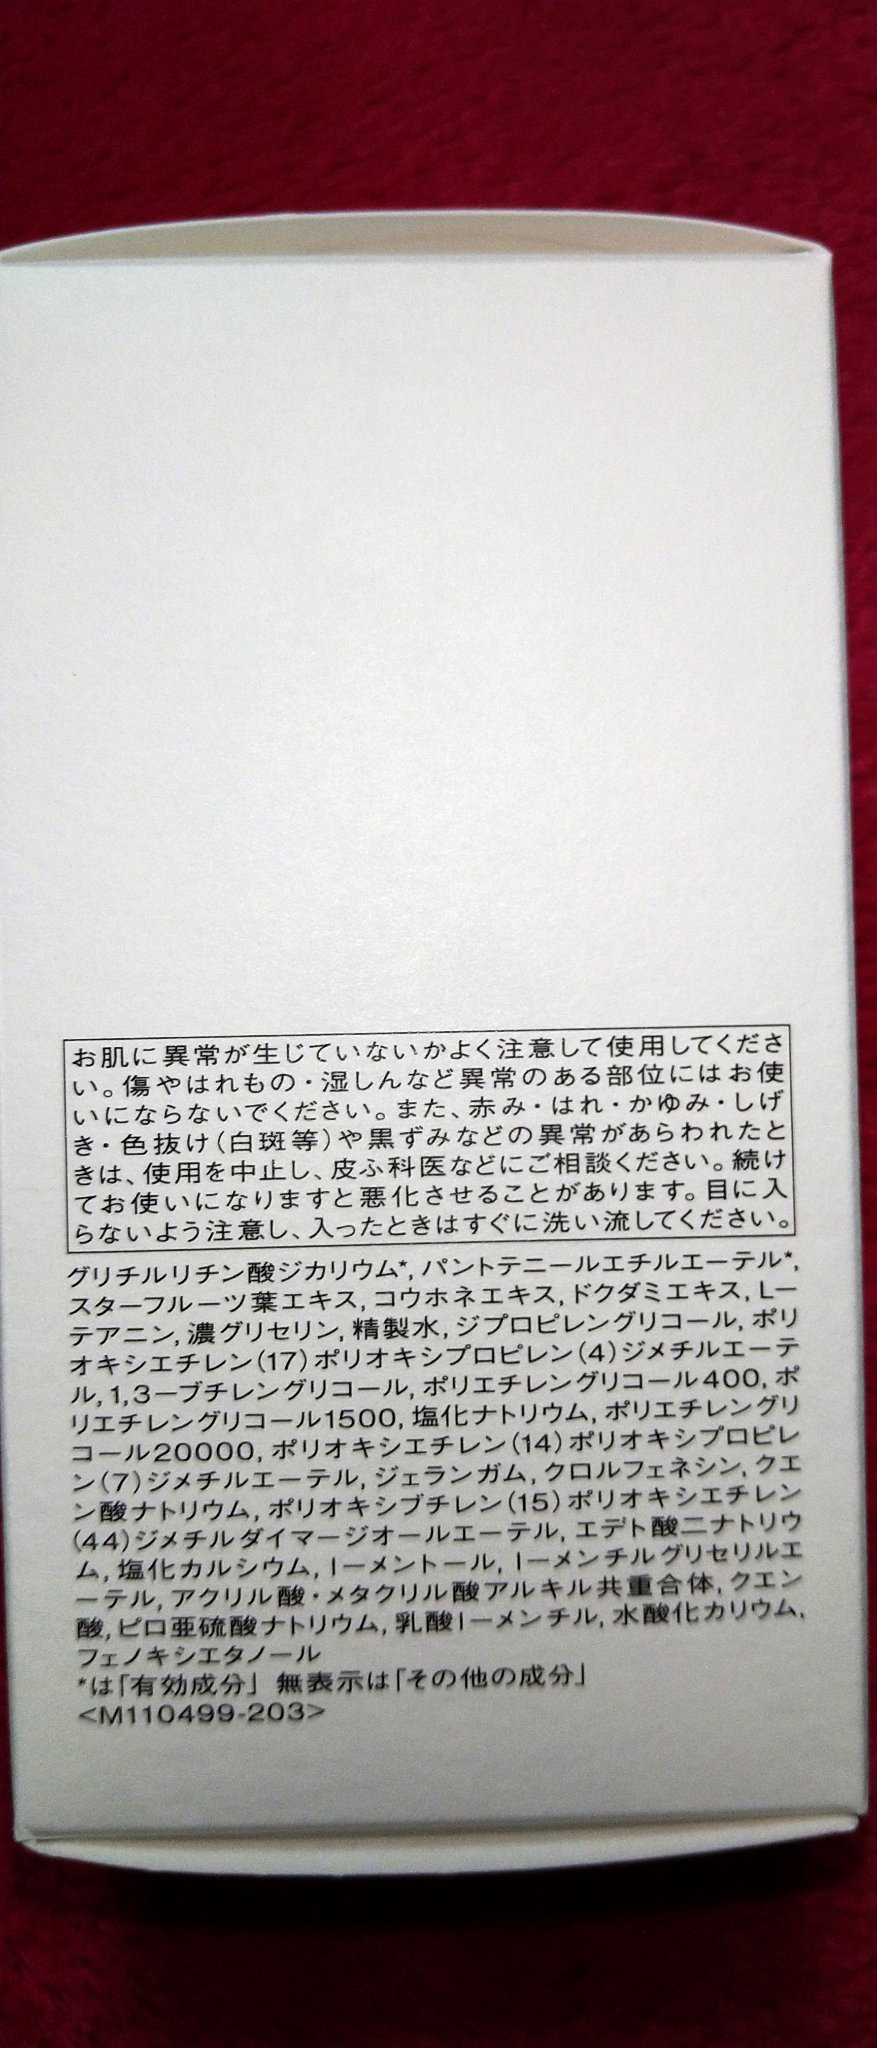 お肌に異常が生じていないかよく注意して使用してくださ
い。傷やはれもの・湿しんなど異常のある部位にはお使
いにならないでください。また、赤み・はれ・かゆみ・しげ
き・色抜け(白斑等)や黒ずみなどの異常があらわれたと
きは、使用を中止し、皮ふ科医などにご相談ください。続け
てお使いになりますと悪化させることがあります。目に入
らないよう注意し、入ったときはすぐに洗い流してください。
グリチルリチン酸ジカリウム*, パントテニールエチルエーテル*,
スターフルーツ葉エキス, コウホネエキス, ドクダミエキス, L-
テアニン, 濃グリセリン, 精製水, ジプロピレングリコール, ポリ
オキシエチレン(17)ポリオキシプロピレン(4)ジメチルエーテ
ル, 1,3-ブチレングリコール, ポリエチレングリコール400, ポ
リエチレングリコール1500, 塩化ナトリウム, ポリエチレングリ
コール20000, ポリオキシエチレン(14)ポリオキシプロピレ
ン(7)ジメチルエーテル, ジェランガム, クロルフェネシン, クエ
ン酸ナトリウム, ポリオキシブチレン(15)ポリオキシエチレン
(44)ジメチルダイマージオールエーテル, エデト酸二ナトリウ
ム, 塩化カルシウム, l-メントール, l-メンチルグリセリルエ
ーテル, アクリル酸・メタクリル酸アルキル共重合体, クエン
酸, ピロ亜硫酸ナトリウム, 乳酸l-メンチル, 水酸化カリウム,
フェノキシエタノール
*は「有効成分」 無表示は「その他の成分」
<M110499-203>